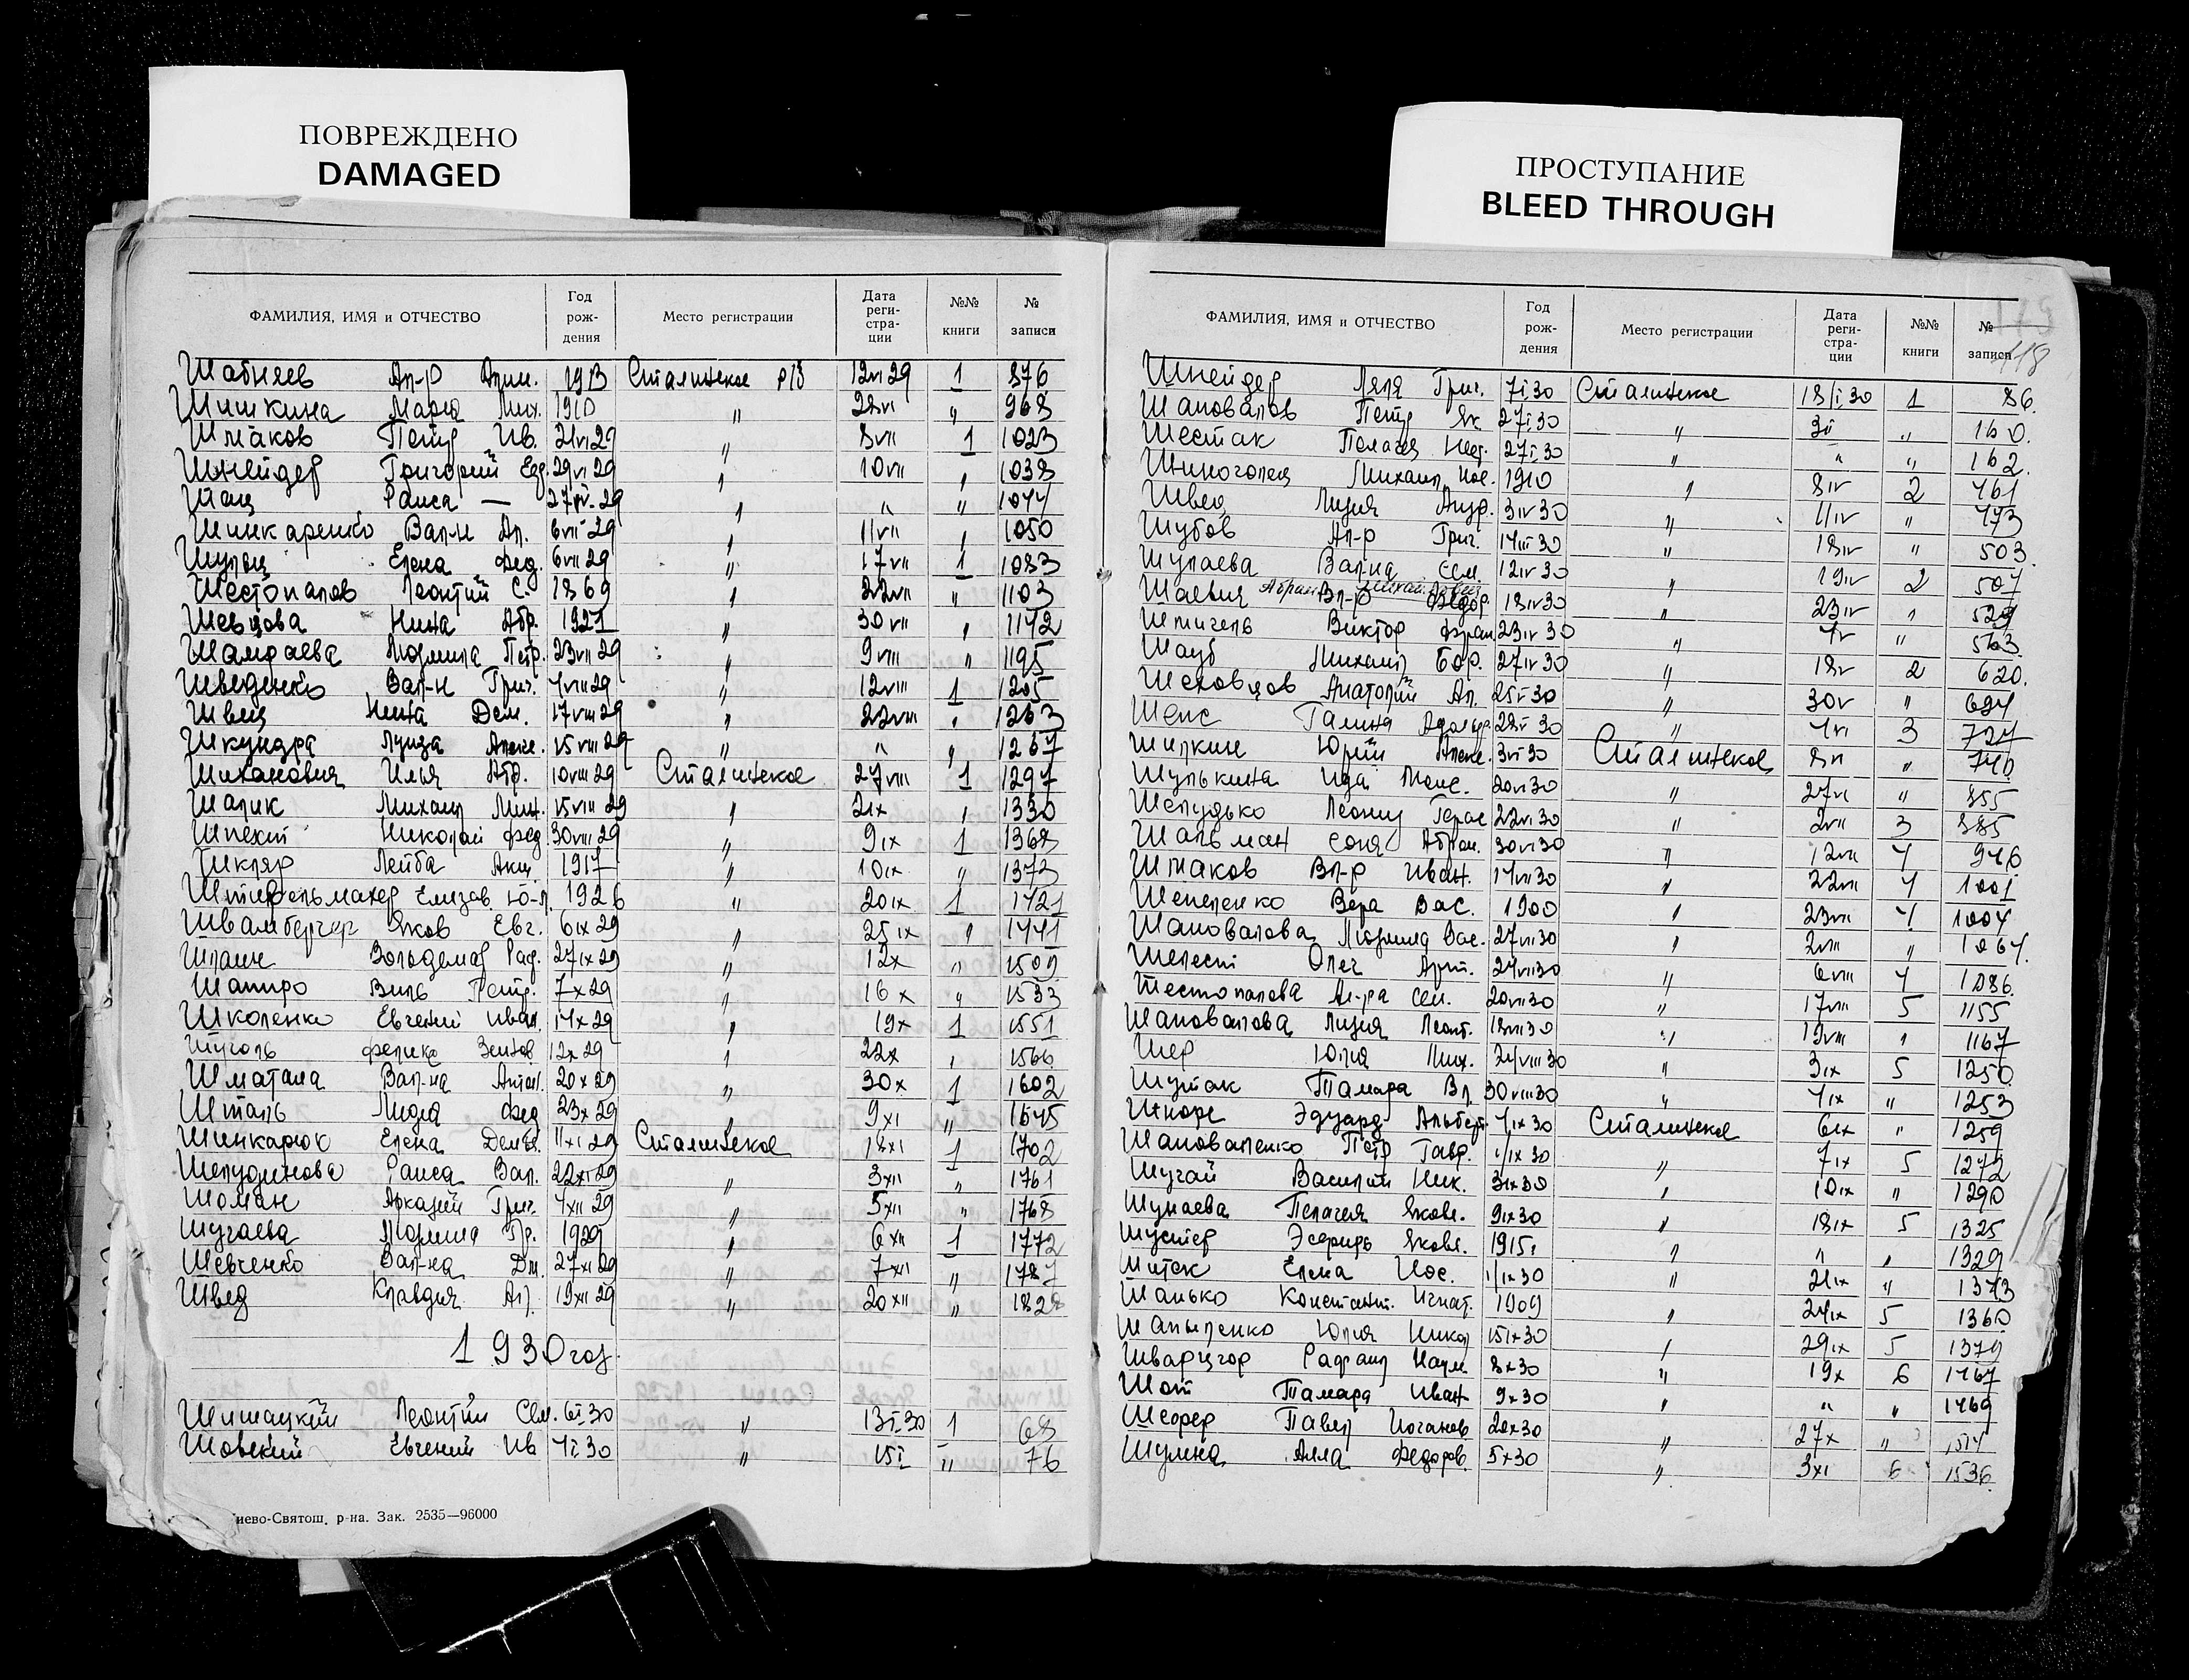 ПОВРЕЖДЕНО
DAMAGED
ПРОСТУПАНИЕ
BLEED THROUGH
ФАМИЛИЯ, ИМЯ и ОТЧЕСТВО Год рождения Место регистрации Дата регистрации №№ книги № записи
Ал-р 1913 Сталинское р/б 12 VI 29 1 876
Шишкина Мария Мих. 1910 " 28 VI " 968
Шпаков Петр Ив. 21 VI 29 " 8 VII 1 1023
Шнейдер Григорий 29 VI 29 " 10 VII " 1038
Раиса — 29 " " " 1044
Шинкаренко Вал-н Ал. 6 VII 29 " 11 VII " 1050
Шулец Елена Фед. 6 VII 29 " 17 VII 1 1083
Шестопалов Леонтий С. 1869 " 22 VII " 1103
Шевцова Нина Абр. 1921 " 30 VII " 1142
Людмила Петр. 23 VII 29 " 9 VIII " 1195
Шведенко Вал-н Григ. 4 VIII 29 " 12 VIII 1 1205
Швец Нина Дем. 17 VIII 29 " 22 VIII " 1263
Шкундра Луиза Алекс. 15 VIII 29 " " " 1267
Шиханович Илья Абр. 10 VIII 29 Сталинское 27 VIII 1 1297
Шапик Михаил 15 VIII 29 " 2 IX " 1330
Шпехт Николай Фед 30 VIII 29 " 9 IX 1 1368
Шкляр Лейба 1917 " 10 IX " 1373
Штифельмахер Елизав. 1926 " 20 IX 1 1421
Швамбергер Яков Евг. 6 IX 29 " 25 IX " 1441
Вольдемар 27 IX 29 " 12 X " 1509
Шапиро Виль Петр. 7 X 29 " 16 X " 1533
Школенко Евгений Иван. 14 X 29 " 19 X 1 1551
Шуголь Феликс 12 X 29 " 22 X " 1566
Шматала Вал-на Антон. 20 X 29 " 30 X 1 1602
Шталь Лидия Фед 23 X 29 " 9 XI " 1645
Шинкарюк Елена 11 XI 29 Сталинское 18 XI 1 1702
Раиса Вал. 22 XI 29 " 3 XII " 1761
Шоман Аркадий Григ. 4 XII 29 " 5 XII " 1768
Шугаева Людмила Гр. 1929 " 6 XII 1 1772
Шевченко Вал-на Дм. 27 XI 29 " 7 XII " 1787
Швед Клавдия Ал. 19 XII 29 " 20 XII " 182
1930 год.
Шишацкий Леонтий Сем. 6 I 30 " 13 I 30 1 68
Шовский Евгений Ив 4 I 30 " 15 I " 76
иево-Святош. р-на. Зак. 2535—96000
ФАМИЛИЯ, ИМЯ и ОТЧЕСТВО Год рождения Место регистрации Дата регистрации №№ книги № записи
118
Шнейдер Ляля Григ. 7 I 30 Сталинское 18/I 30 1 86.
Шаповалов Петр Як. 27 I 30 " " 160.
Шестак Пелагея 27 I 30 " " " 162.
Шниголец Михаил Иос. 1910 " 8 IV 2 461
Швец Лидия Андр. 3 IV 30 " 11 IV " 473
Шубов Ал-р Григ. 14 III 30 " 18 IV " 503.
Шулаева Вал-на Сем. 12 IV 30 " 19 IV 2 507
Шаевич Вл-р 18 IV 30 " 23 IV " 529
Шпигель Виктор Фран 23 IV 30 " 4 V " 563.
Шауб Михаил Бор. 27 IV 30 " 18 V 2 620.
Шеховцов Анатолий Ал. 25 V 30 " 30 V " 694
Шепс Галина Адольф 28 V 30 " 4 VI 3 727
Шипкин Юрий Алекс. 3 VI 30 Сталинское 8 VI " 740
Шулькина Ида Моис. 20 VI 30 " 27 VI " 855
Шепудько Леонид Герас 22 VI 30 " 2 VII 3 885
Шальман Соня Абрам. 30 VI 30 " 12 VII 4 946
Шпаков Вл-р Иван. 14 VII 30 " 22 VII 4 1001
Шепеленко Вера Вас. 1900 " 23 VII 4 1004
Шаповалова Людмила Вас. 27 VII 30 " 2 VIII " 1064.
Шелест Олег Арт. 24 VII 30 " 6 VIII 4 1086.
Шестопалова Ал-ра Сем. 20 VII 30 " 17 VIII 5 1155
Шаповалова Лидия Леонт. 18 VII 30 " 19 VIII " 1167
Шер Юлия Мих. 24 VIII 30 " 3 IX 5 1250
Шутак Тамара Вл. 30 VIII 30 " 4 IX " 1253
Шнорс Эдуард Альберт 4 IX 30 Сталинское 6 IX " 1259
Шаповаленко Петр Гавр. 1/IX 30 " 7 IX 5 1272
Шугай Василий Ник. 3 IX 30 " 10 IX " 1290
Шунаева Пелагея Яковл. 9 IX 30 " 18 IX 5 1325
Шустер Эсфирь Яковл. 1915 " " " 1329
Шитак Елена Иос. 1/IX 30 " 21 IX " 1343
Шанько Констант. Игнат. 1909 " 24 IX 5 1360
Юлия Никол 15 IX 30 " 29 IX 5 1379
Шварцгор Рафаил Наум. 8 X 30 " 19 X 6 1467
Шот Тамара Иван 9 X 30 " " " 1469
Шефер Павел Иоганов. 20 X 30 " 27 X " 1514
Шулина Алла Федоров. 5 X 30 " 3 XI 6 1536